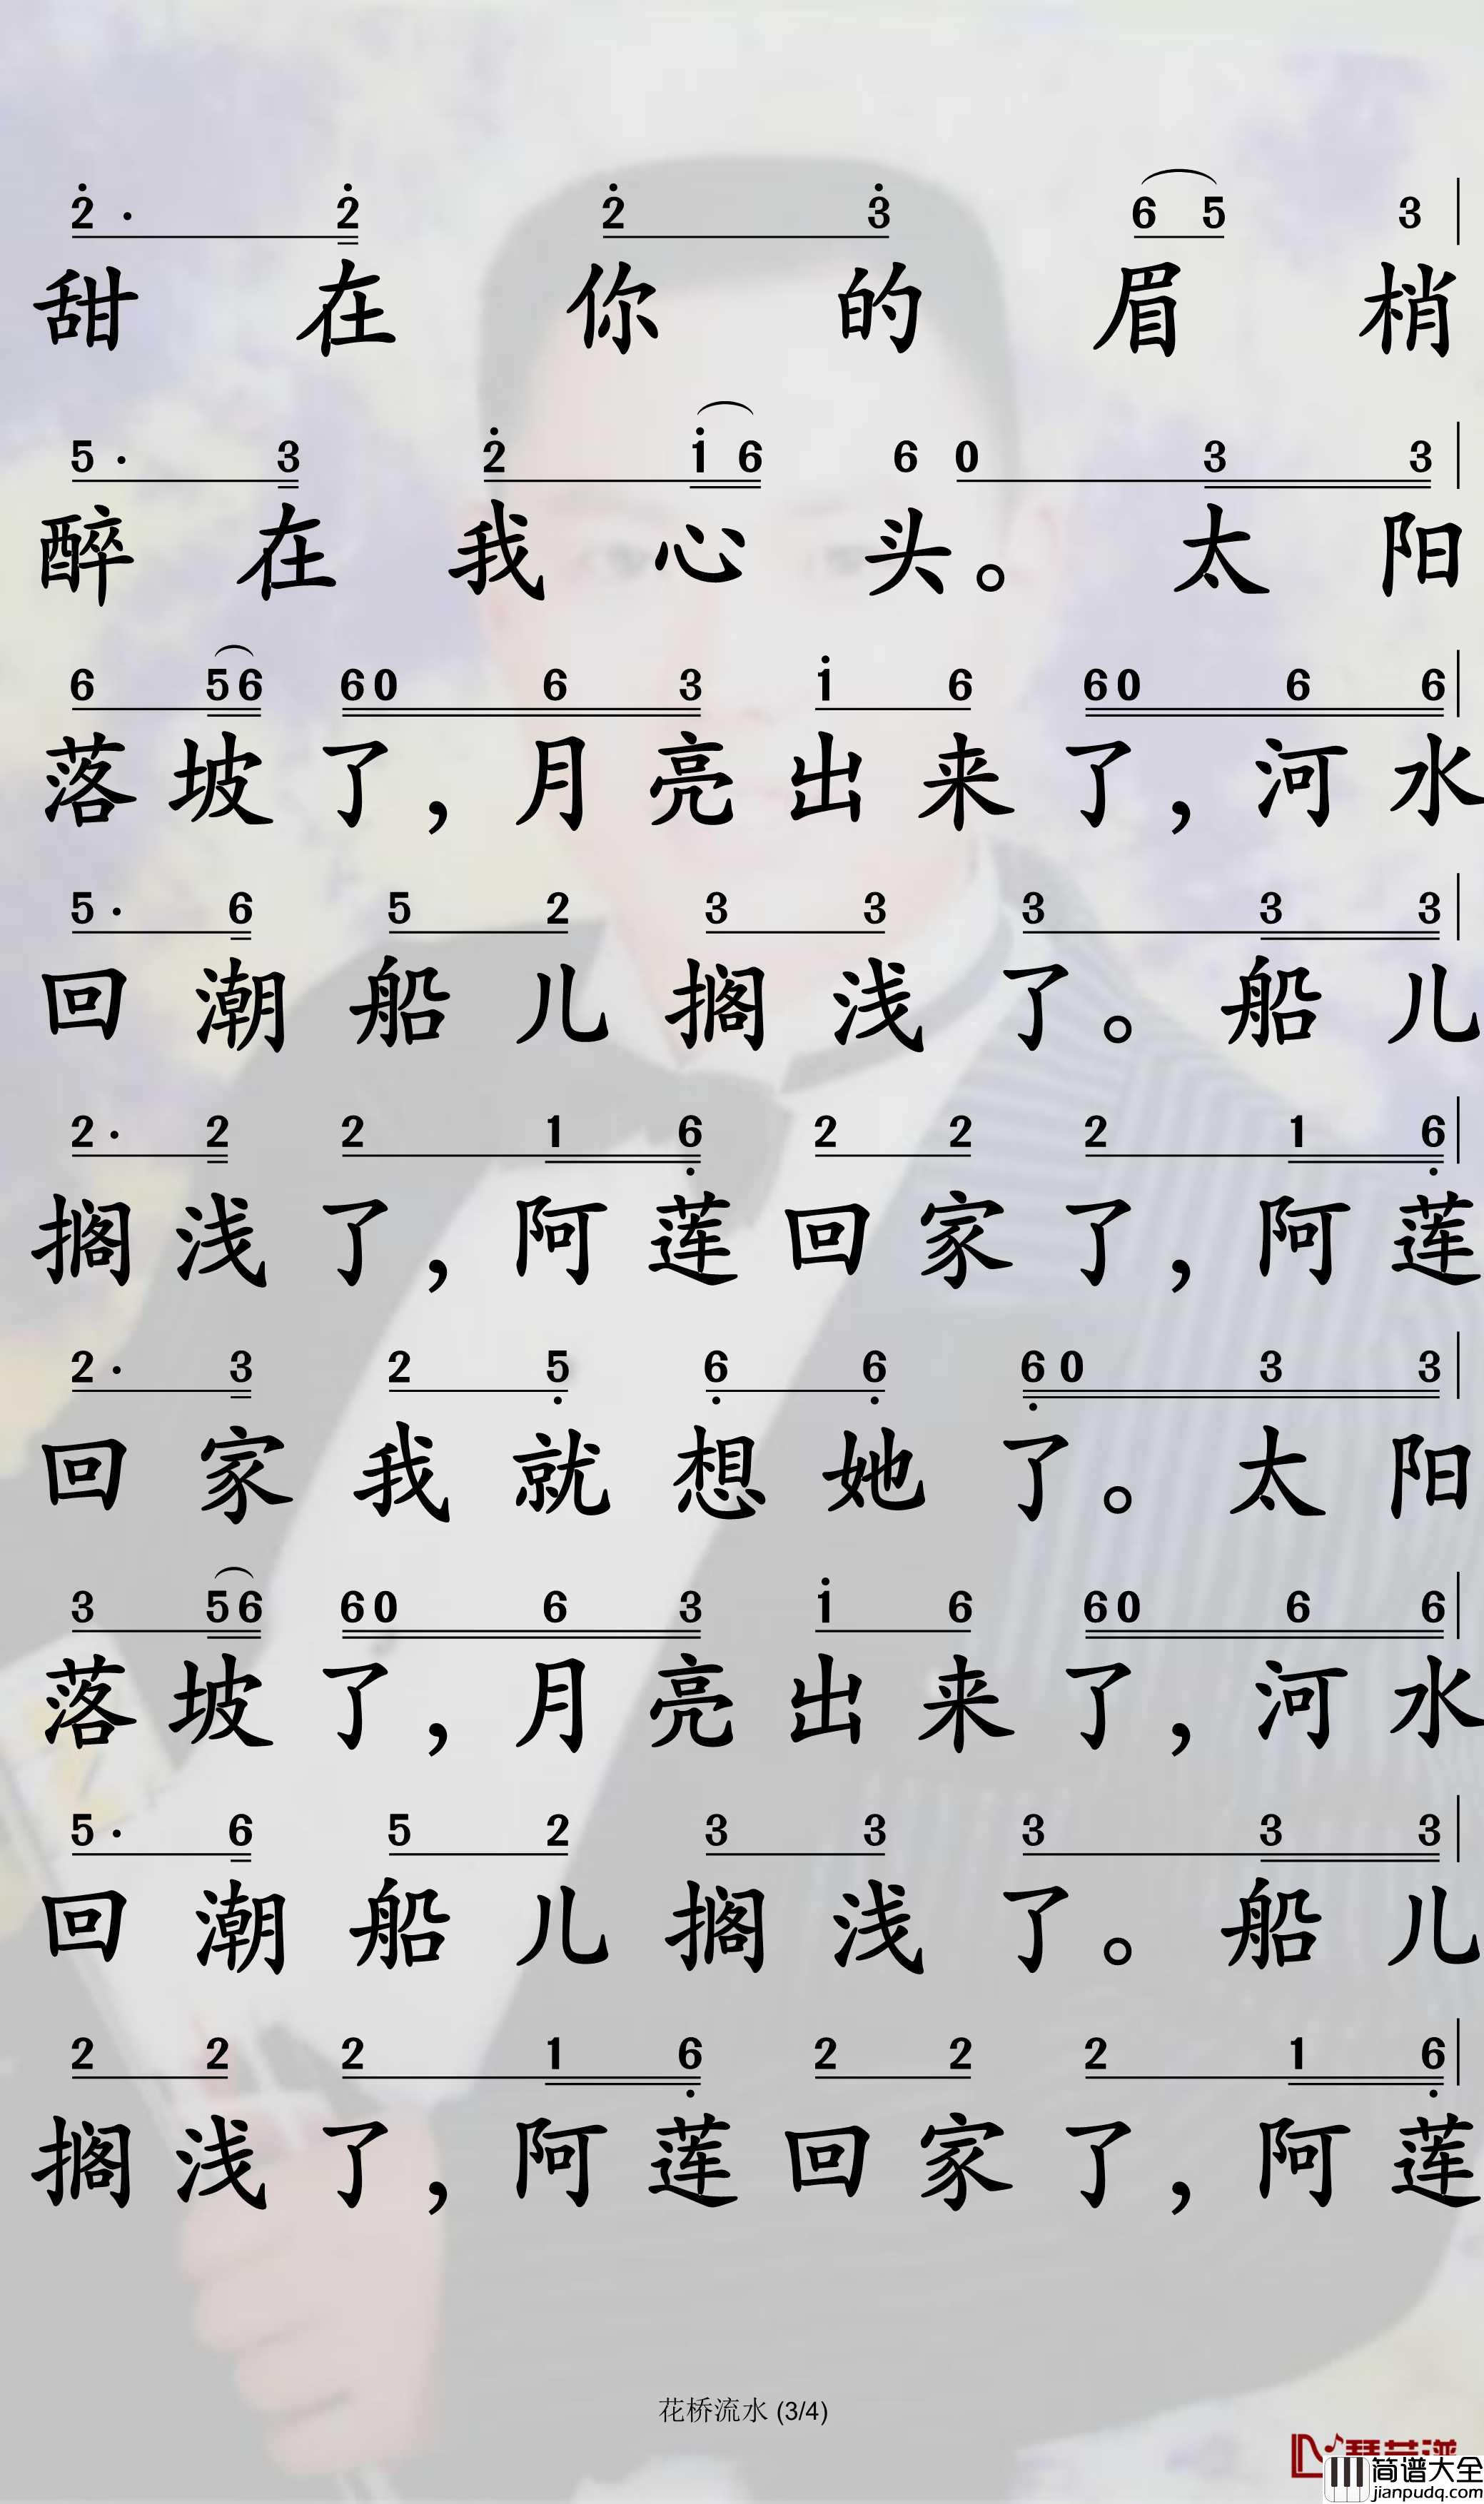 2· 2 2 3 6 5 3
甜在你的眉梢
5· 3 2 1 6 6 0 3 3
醉在我心头。太阳
6 56 60 6 3 1 6 60 6 6
落坡了，月亮出来了，河水
5· 6 5 2 3 3 3 3 3
回潮船儿搁浅了。船儿
2· 2 2 1 6 2 2 2 1 6
搁浅了，阿莲回家了，阿莲
2· 3 2 5 6 6 60 3 3
回家我就想她了。太阳
3 56 60 6 3 1 6 60 6 6
落坡了，月亮出来了，河水
5· 6 5 2 3 3 3 3 3
回潮船儿搁浅了。船儿
2 2 2 1 6 2 2 2 1 6
搁浅了，阿莲回家了，阿莲
花桥流水 (3/4)
简谱大全
jianpudq.com